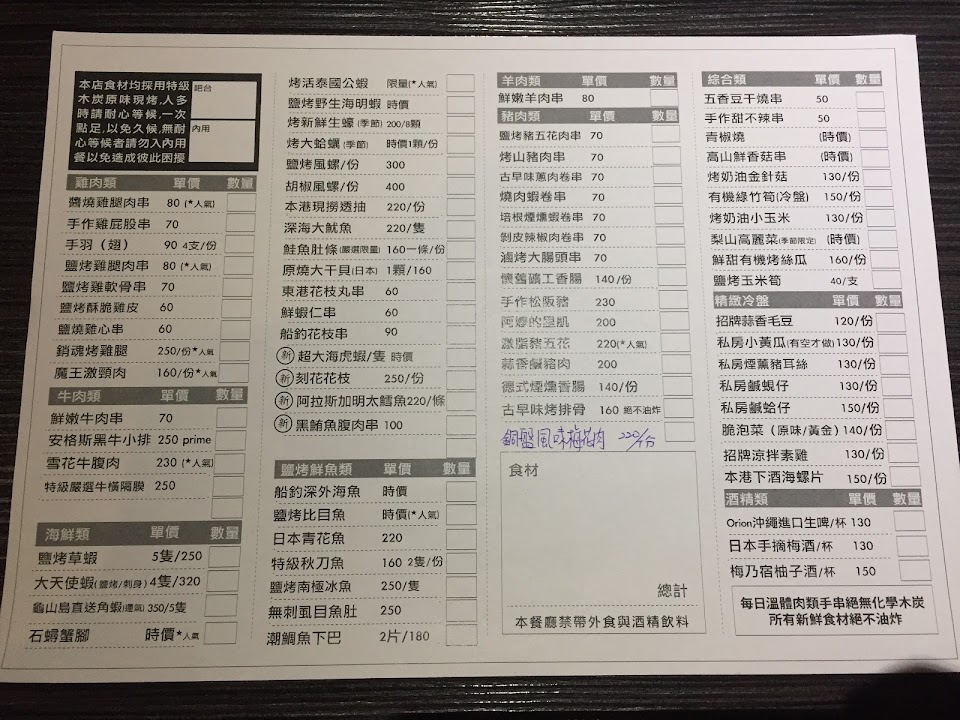 本店食材均採用特級
木炭原味現烤,人多
時請耐心等候,一次
點足,以免久候,無耐
心等候者請勿入內用
餐以免造成彼此困擾
吧台
內用
雞肉類 單價 數量
醬燒雞腿肉串 80 (*人氣)
手作雞屁股串 70
手羽（翅） 90 4支/份
鹽烤雞腿肉串 80 (*人氣)
鹽烤雞軟骨串 70
鹽烤酥脆雞皮 60
鹽燒雞心串 60
銷魂烤雞腿 250/份*人氣
魔王激頸肉 160/份*人氣
牛肉類 單價 數量
鮮嫩牛肉串 70
安格斯黑牛小排 250 prime
雪花牛腹肉 230 (*人氣)
特級嚴選牛橫隔膜 250
海鮮類 單價 數量
鹽烤草蝦 5隻/250
大天使蝦(鹽烤/刺身) 4隻/320
龜山島直送角蝦(運氣) 350/5隻
石蟳蟹腳 時價*人氣
烤活泰國公蝦 限量(*人氣)
鹽烤野生海明蝦 時價
烤新鮮生蠔(季節) 200/8顆
烤大蛤蠣(季節) 時價1顆/份
鹽烤風螺/份 300
胡椒風螺/份 400
本港現撈透抽 220/份
深海大魷魚 220/隻
鮭魚肚條(嚴選限量) 160一條/份
原燒大干貝(日本) 1顆/160
東港花枝丸串 60
鮮蝦仁串 60
船釣花枝串 90
新 超大海虎蝦/隻 時價
新 刻花花枝 250/份
新 阿拉斯加明太鱈魚220/條
新 黑鮪魚腹肉串 100
鹽烤鮮魚類 單價 數量
船釣深外海魚 時價
鹽烤比目魚 時價(*人氣)
日本青花魚 220
特級秋刀魚 160 2隻/份
鹽烤南極冰魚 250/隻
無刺虱目魚肚 250
潮鯛魚下巴 2片/180
羊肉類 單價 數量
鮮嫩羊肉串 80
豬肉類 單價 數量
鹽烤豬五花肉串 70
烤山豬肉串 70
古早味蔥肉卷串 70
燒肉蝦卷串 70
培根煙燻蝦卷串 70
剝皮辣椒肉卷串 70
滷烤大腸頭串 70
懷舊礦工香腸 140/份
手作松阪豬 230
阿嬤的里肌 200
激脂豬五花 220(*人氣)
蒜香鹹豬肉 200
德式煙燻香腸 140/份
古早味烤排骨 160 絕不油炸
銅盤風味梅花肉 220/份
食材
總計
本餐廳禁帶外食與酒精飲料
綜合類 單價 數量
五香豆干燒串 50
手作甜不辣串 50
青椒燒 (時價)
高山鮮香菇串 (時價)
烤奶油金針菇 130/份
有機綠竹筍(冷盤) 150/份
烤奶油小玉米 130/份
梨山高麗菜(季節限定) (時價)
鮮甜有機烤絲瓜 160/份
鹽烤玉米筍 40/支
精緻冷盤 單價 數量
招牌蒜香毛豆 120/份
私房小黃瓜(有空才做)130/份
私房煙薰豬耳絲 130/份
私房鹹蜆仔 130/份
私房鹹蛤仔 150/份
脆泡菜（原味/黃金）140/份
招牌涼拌素雞 130/份
本港下酒海螺片 150/份
酒精類 單價 數量
Orion沖繩進口生啤/杯 130
日本手摘梅酒/杯 130
梅乃宿柚子酒/杯 150
每日溫體肉類手串絕無化學木炭
所有新鮮食材絕不油炸